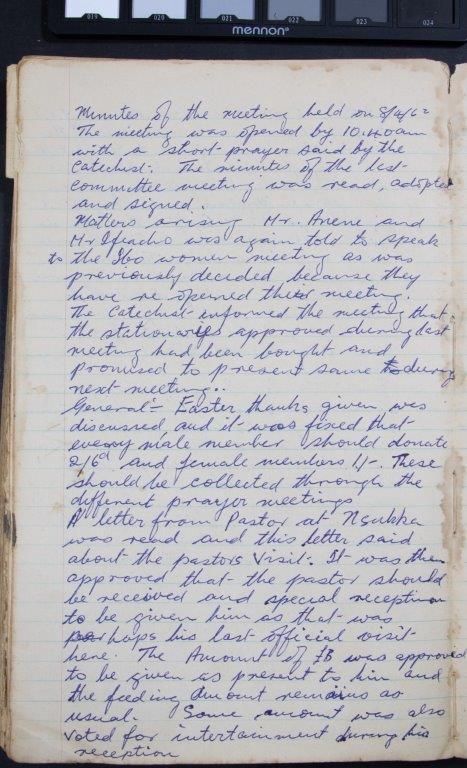 019 020 021 022 023 024
mennon
Minutes of the meeting held on 8/4/62
The meeting was opened by 10.40am
with a short prayer said by the
Catechist. The minutes of the last
committee meeting was read, adopted
and signed.
Matters arising Mr. Anene and
Mr Ifeacho was again told to speak
to the Ibo women meeting as was
previously decided because they
have re opened their meeting.
The Catechist informed the meeting that
the stationaries approved during last
meeting had been bought and
promised to present same during
next meeting..
General:- Easter thanks given was
discussed and it was fixed that
every male member should donate
2/6d and female members 1/-. These
should be collected through the
different prayer meetings
A letter from Pastor at Nsukka
was read and this letter said
about the pastors visit. It was then
approved that the pastor should
be received and special reception
to be given him as that was
perhaps his last official visit
here. The Amount of was approved
to be given as present to him and
the feeding amount remains as
usual. Same amount was also
voted for intertainment during his
reception